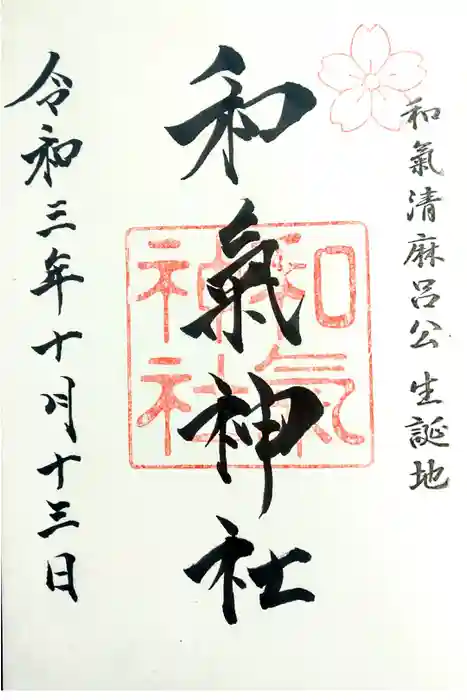 和氣清麻呂公生誕地
和氣神社
和氣
神社
令和三年十月十三日